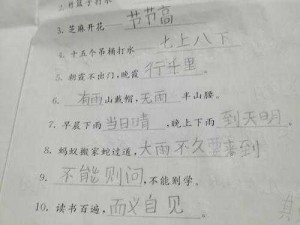 3. 芝麻开花 节节高
4. 十五个吊桶打水 七上八下
5. 朝霞不出门,晚霞行千里。
6. 有雨山戴帽,无雨半山腰。
7. 早晨下雨当日晴,晚上下雨到天明。
8. 蚂蚁搬家蛇过道,大雨不久要来到
9. 不能则问,不能则学。
10. 读书百遍,而义自见。